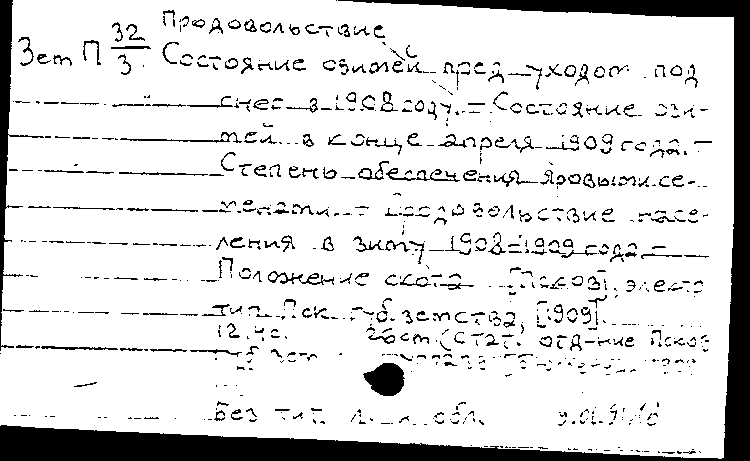 Продовольствие
Зем П 32/3. Состояние озимей пред уходом под
снег в 1908 году. – Состояние ози-
мей в конце апреля 1909 года. –
Степень обеспечения яровыми се-
менами. – Продовольствие насе-
ления в зиму 1908–1909 года. –
Положение скота [Псков], электро
тип. Пск. губ. земства, [1909].
12. 4с. 26см (Стат. отд-ние Псков
губ. зем 1909
Без тит. л. и обл.